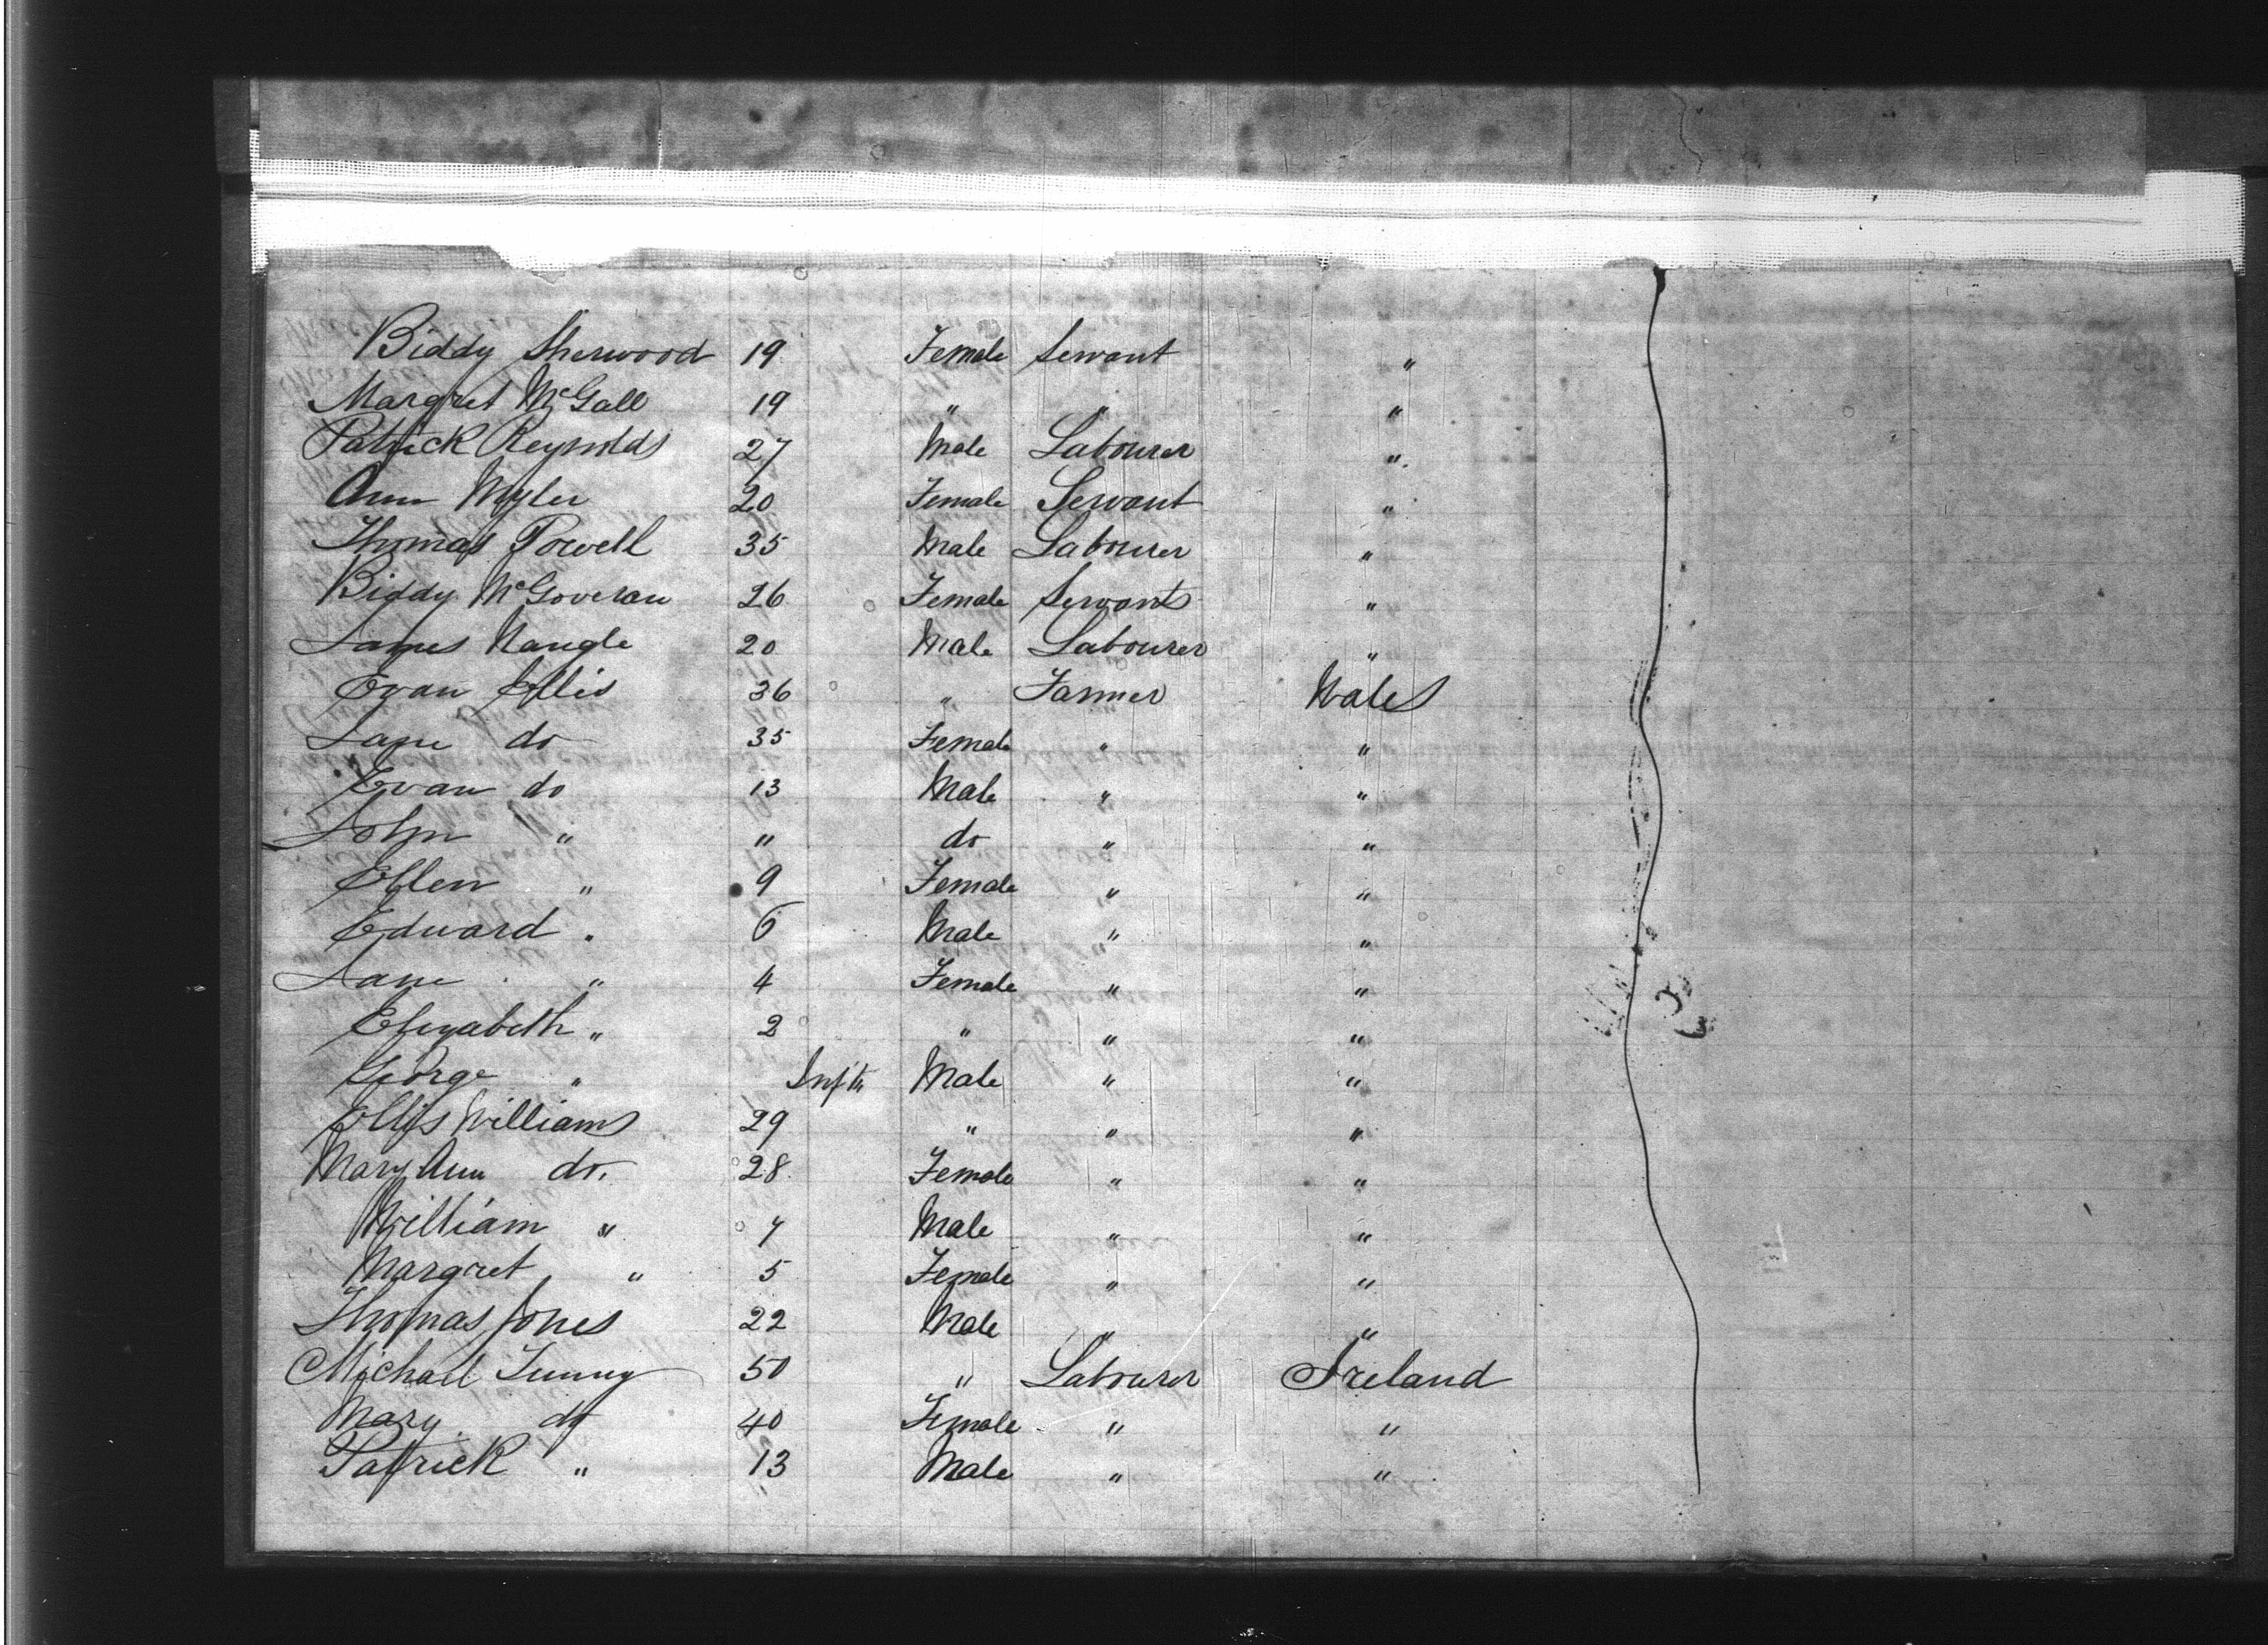 Biddy Sherwood 19 Female Servant "
Margret McGall 19 " " "
Patrick Reynolds 27 Male Labourer "
Ann Myler 20 Female Servant "
Thomas Powell 35 Male Labourer "
Biddy McGoveran 26 Female Servants "
James Nangle 20 Male Labourer "
Evan Ellis 36 " Farmer Wales
Jane do 35 Female " "
Evan do 13 Male " "
John " " do " "
Ellen " 9 Female " "
Edward " 6 Male " "
Jane " 4 Female " "
Elizabeth " 2 " " "
George " Male " "
Ellis Williams 29 " " "
Mary Ann do. 28 Female " "
William " 7 Male " "
Margret " 5 Female " "
Thomas Jones 22 Male " "
Michael 50 " Labourer Ireland
Mary do 40 Female " "
Patrick " 13 Male " "